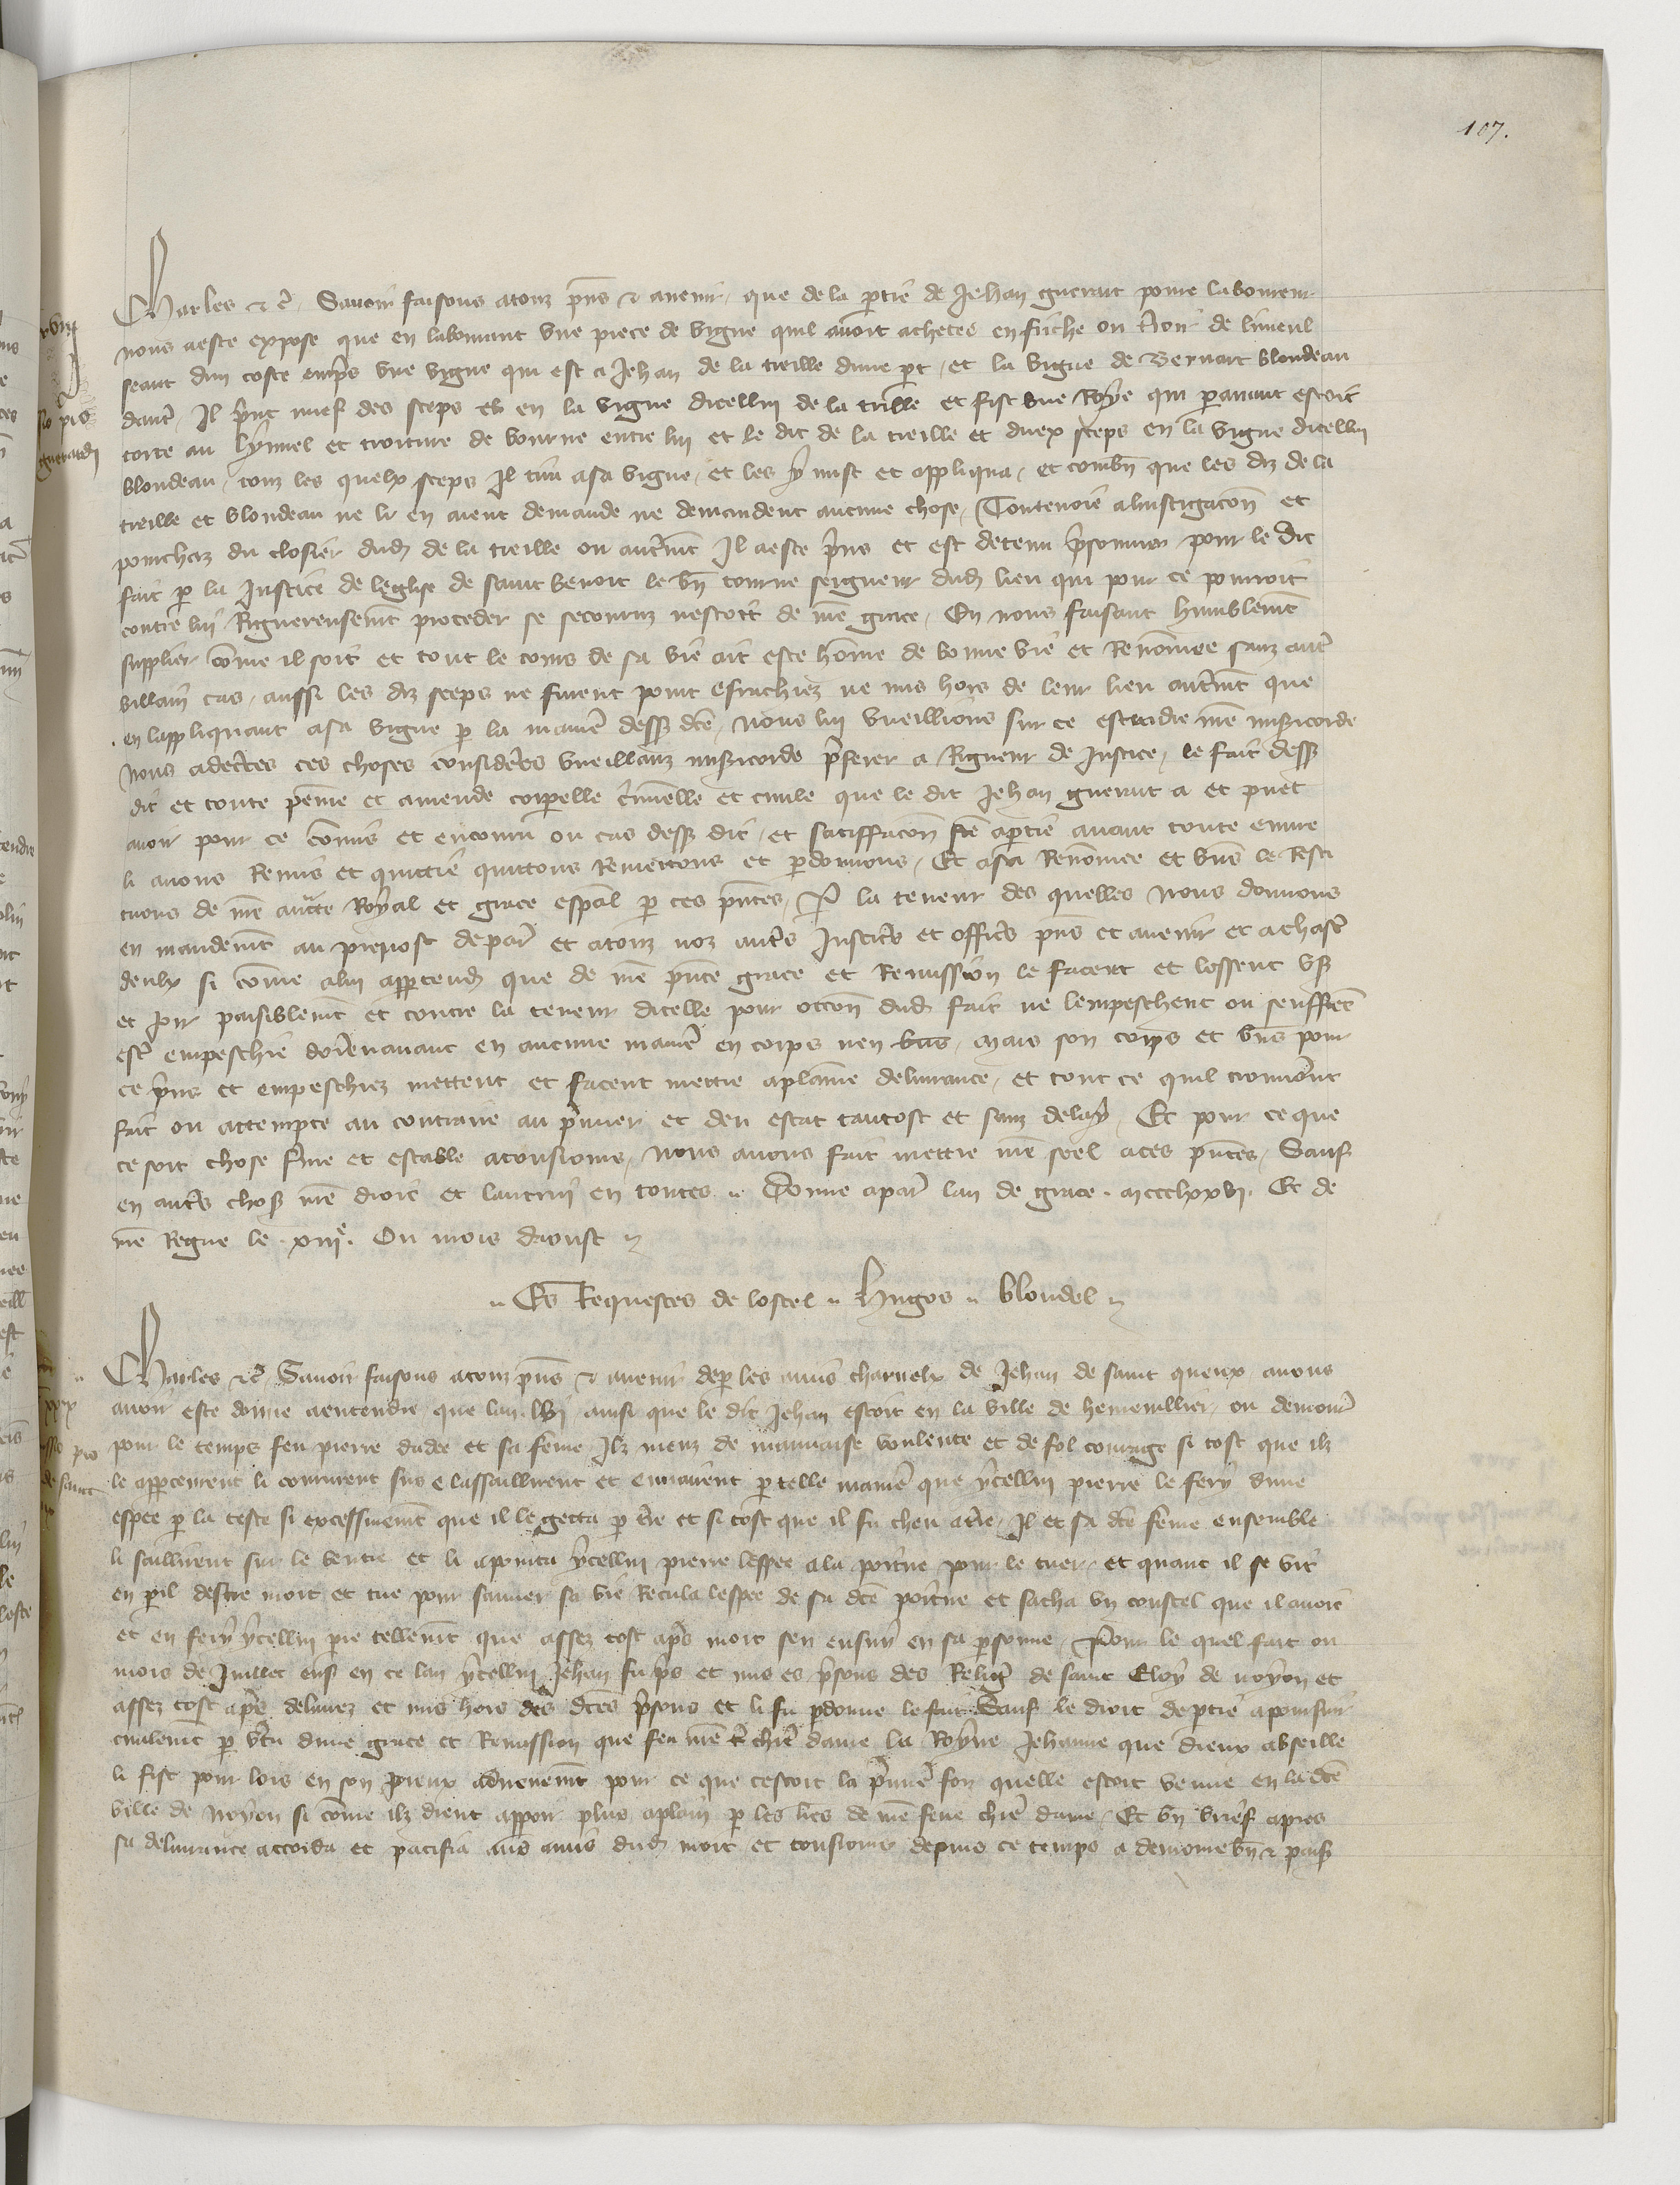 107.
Charles & c̄. Savoir faisons a touz p̄ns & avenir, que de la p̱tie de Jehan guerart povre laboureur
nous a esté exposé que en labourant une piece de vygne quil avoit achetee en friche ou t̄roir de limeul
seant dun costé emp̄s une vygne qui est a Jehan de la treille dune p̱t, et la vigne de Bernart blondeau
dautr̄, Il p̄nt nuef des sceps en la vigne dicellui de la treille et fist une Roye qui p̱avant estoit
torte au lymel et droiture de bourne entre lui et le dit de la treille et deux sceps en la vigne dicellui
blondeau, touz les quelx sceps Il tira a sa vigne, et les y mist et appliqua, et combn̄ que les diz de la
treille et blondeau ne li en aient demandé ne demandent aucune chose, Toutevoie a linstigacōn et
pourchaz du closier dud̄ de la treille ou autrem̄t Il a esté p̄ns et est detenu p̄sonnier pour le dit
fait p̱ la Justice de leglise de saint benoit le bn̄ tourné seigneur dud̄ lieu qui pour ce pourroit
contre lui Riguereusem̄t proceder se secouruz nestoit de n̄re grace, En nous faisant humblem̄t
supplier cōme il soit et tout le cours de sa vie ait esté hōme de bonne vie et Renōmee sanz autr̄
villain cas, aussi les diz sceps ne furent point esrachiez ne mis hors de leur lieu autrem̄t que
en lappliquant a sa vigne p̱ la manier̄ dess̄ dc̄e, nous lui vueillions sur ce estendre n̄re miß̄icorde
Nous adec̄tes ces choses consider̄es vueillanz miß̄icorde p̄ferer a Rigueur de Justice, le fait dess̄
dit et toute peine et amende corporelle c̄iminelle et civile que le dit Jehan guerart a et puet
avoir pour ce cōmis et encouru ou cas dess̄ dit, et satiffacōn fc̄e a p̱tie avant toute euvre
li avons Remis et quittié quittons Remettons et p̱donnons, Et a sa Renōmee et bn̄s le Resti
tuons de n̄re auc̄te Royal et grace esp̄al p̱ ces p̄ntes, P̱ la teneur des quelles Nous donnons
en mandem̄t au prevost de par̄ et a touz noz autr̄s Justic̄s et offic̄s p̄ns et avenir et a chasc̄
deulx si cōme a lui app̱tend̄ que de n̄re p̄nte grace et Remission le facent et lessent uß̄
et joir paisiblem̄t et contre la teneur dicelle pour occōn dud̄ fait ne lempeschent ou seuffrēt
estr̄ empeschié dorēnavant en aucune manier̄ en corps nen bn̄s, Mais son corps et bn̄s pour
ce p̄ns et empeschiez mettent et facent mettre a plaine delivrance, et tout ce quil trouver̄nt
fait ou attempté au contraire au p̄mier et deu estat tantost et sanz delay, Et pour ce que
ce soit chose ferme et estable a tousiours, Nous avons fait mettre n̄re seel a ces p̄ntes, Sauf
en autr̄s choß̄ n̄re droit et lautrui en toutes. Donné a par̄ lan de grace. mccclxxvi. Et de
n̄re Regne le. xiiie. Ou mois daoust
Es Requestes de lostel. Hugos. blondel
Charles &c̄, Savoir faisons a touz p̄ns & avenir de p̱ les amis charnelx de Jehan de saint queux avons
avoir esté donné a entendre que lan. lvi. ainsi que le dit Jehan estoit en la ville de hemevillier, ou demour̄
pour le temps feu pierre dadee et sa feme Ilz meuz de mauvaise voulenté et de fol courage si tost que ilz
le app̱ceurent li coururent sus & lassaillirent et envair̄ent p̱ telle manier̄ que ycellui pierre le fery dune
espee p̱ la teste si excessivem̄t que il le getta p̱ t̄re et si tost que il fu cheu a t̄re, Il et sa dc̄e feme ensemble
li saillirent sur le ventre et li apointa ycellui pierre lespee a la poitrine pour le tuer, et quant il se vit
en peril destre mort et tué pour sauver sa vie Recula lespee de sa dc̄e poitrine et sacha un coustel que il avoit
et en fery ycellui pie tellem̄t que assez tost ap̄s mort sen ensuy en sa p̱sonne, Pour le quel fait ou
mois de Juillet ens̄ en ce lan ycellui Jehan fu p̄s et mis es p̄sons des Relig̃ de saint Eloy de noyon et
assez tost ap̄s delivrez et mis hors des dc̄es p̄sons et li fu p̱donné le fait Sauf le droit de p̱tie a poursuir
civilem̄t p̱ vertu dune grace et Remission que feu n̄re t̄s chier̄ dame la Royne Jehanne que dieux absoille
li fist pour lors en son joieux advenem̄t pour ce que cestoit la p̄mier̄ foiz quelle estoit venue en la dc̄e
ville de Noyon si cōme ilz dient apparoir plus a plain p̱ les lr̄es de n̄re feue chier̄ dame, Et bn̄ brief apres
sa delivrance accorda et pacifia aus amis dud̄ mort et tousiours depuis ce temps a demouré bn̄ & paiß̄